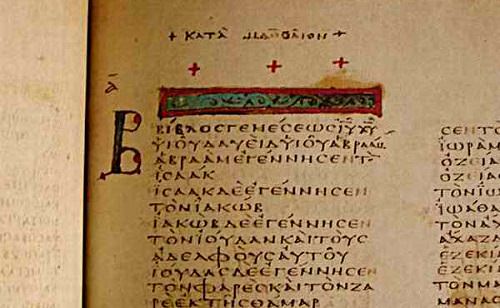 + ΚΑΤΑ ΜΑΘΘΑΙΟΝ +
Α
ΒΙΒΛΟϹΓΕΝΕϹΕΩϹΙΥΧΥ
ΥΙΟΥΔΑΥΕΙΔΥΙΟΥΑΒΡΑΑΜ
ΑΒΡΑΑΜΕΓΕΝΝΗϹΕΝΤΟ
ΙϹΑΑΚ
ΙϹΑΑΚΔΕΕΓΕΝΝΗϹΕΝ
ΤΟΝΙΑΚΩΒ
ΙΑΚΩΒΔΕΕΓΕΝΝΗϹΕΝ
ΤΟΝΙΟΥΔΑΝΚΑΙΤΟΥϹ
ΑΔΕΛΦΟΥϹΑΥΤΟΥ
ΙΟΥΔΑϹΔΕΕΓΕΝΝΗϹΕΝ
ΤΟΝΦΑΡΕϹΚΑΙΤΟΝΖΑ
ΡΕΕΚΤΗϹΘΑΜΑΡ
ϹΕΝΤΟ
ΙΩΡΑΜ
ΟΖΕΙΑ
ΟΖΕΙΑϹ
ΤΟΝΙΩ
ΙΩΑΘΑ
ΤΟΝΑΧ
ΑΧΑΖΔ
ΕΖΕΚΙ
ΕΖΕΚΙΑ
ΤΟΝΜΑ
ΜΑΝΑϹ